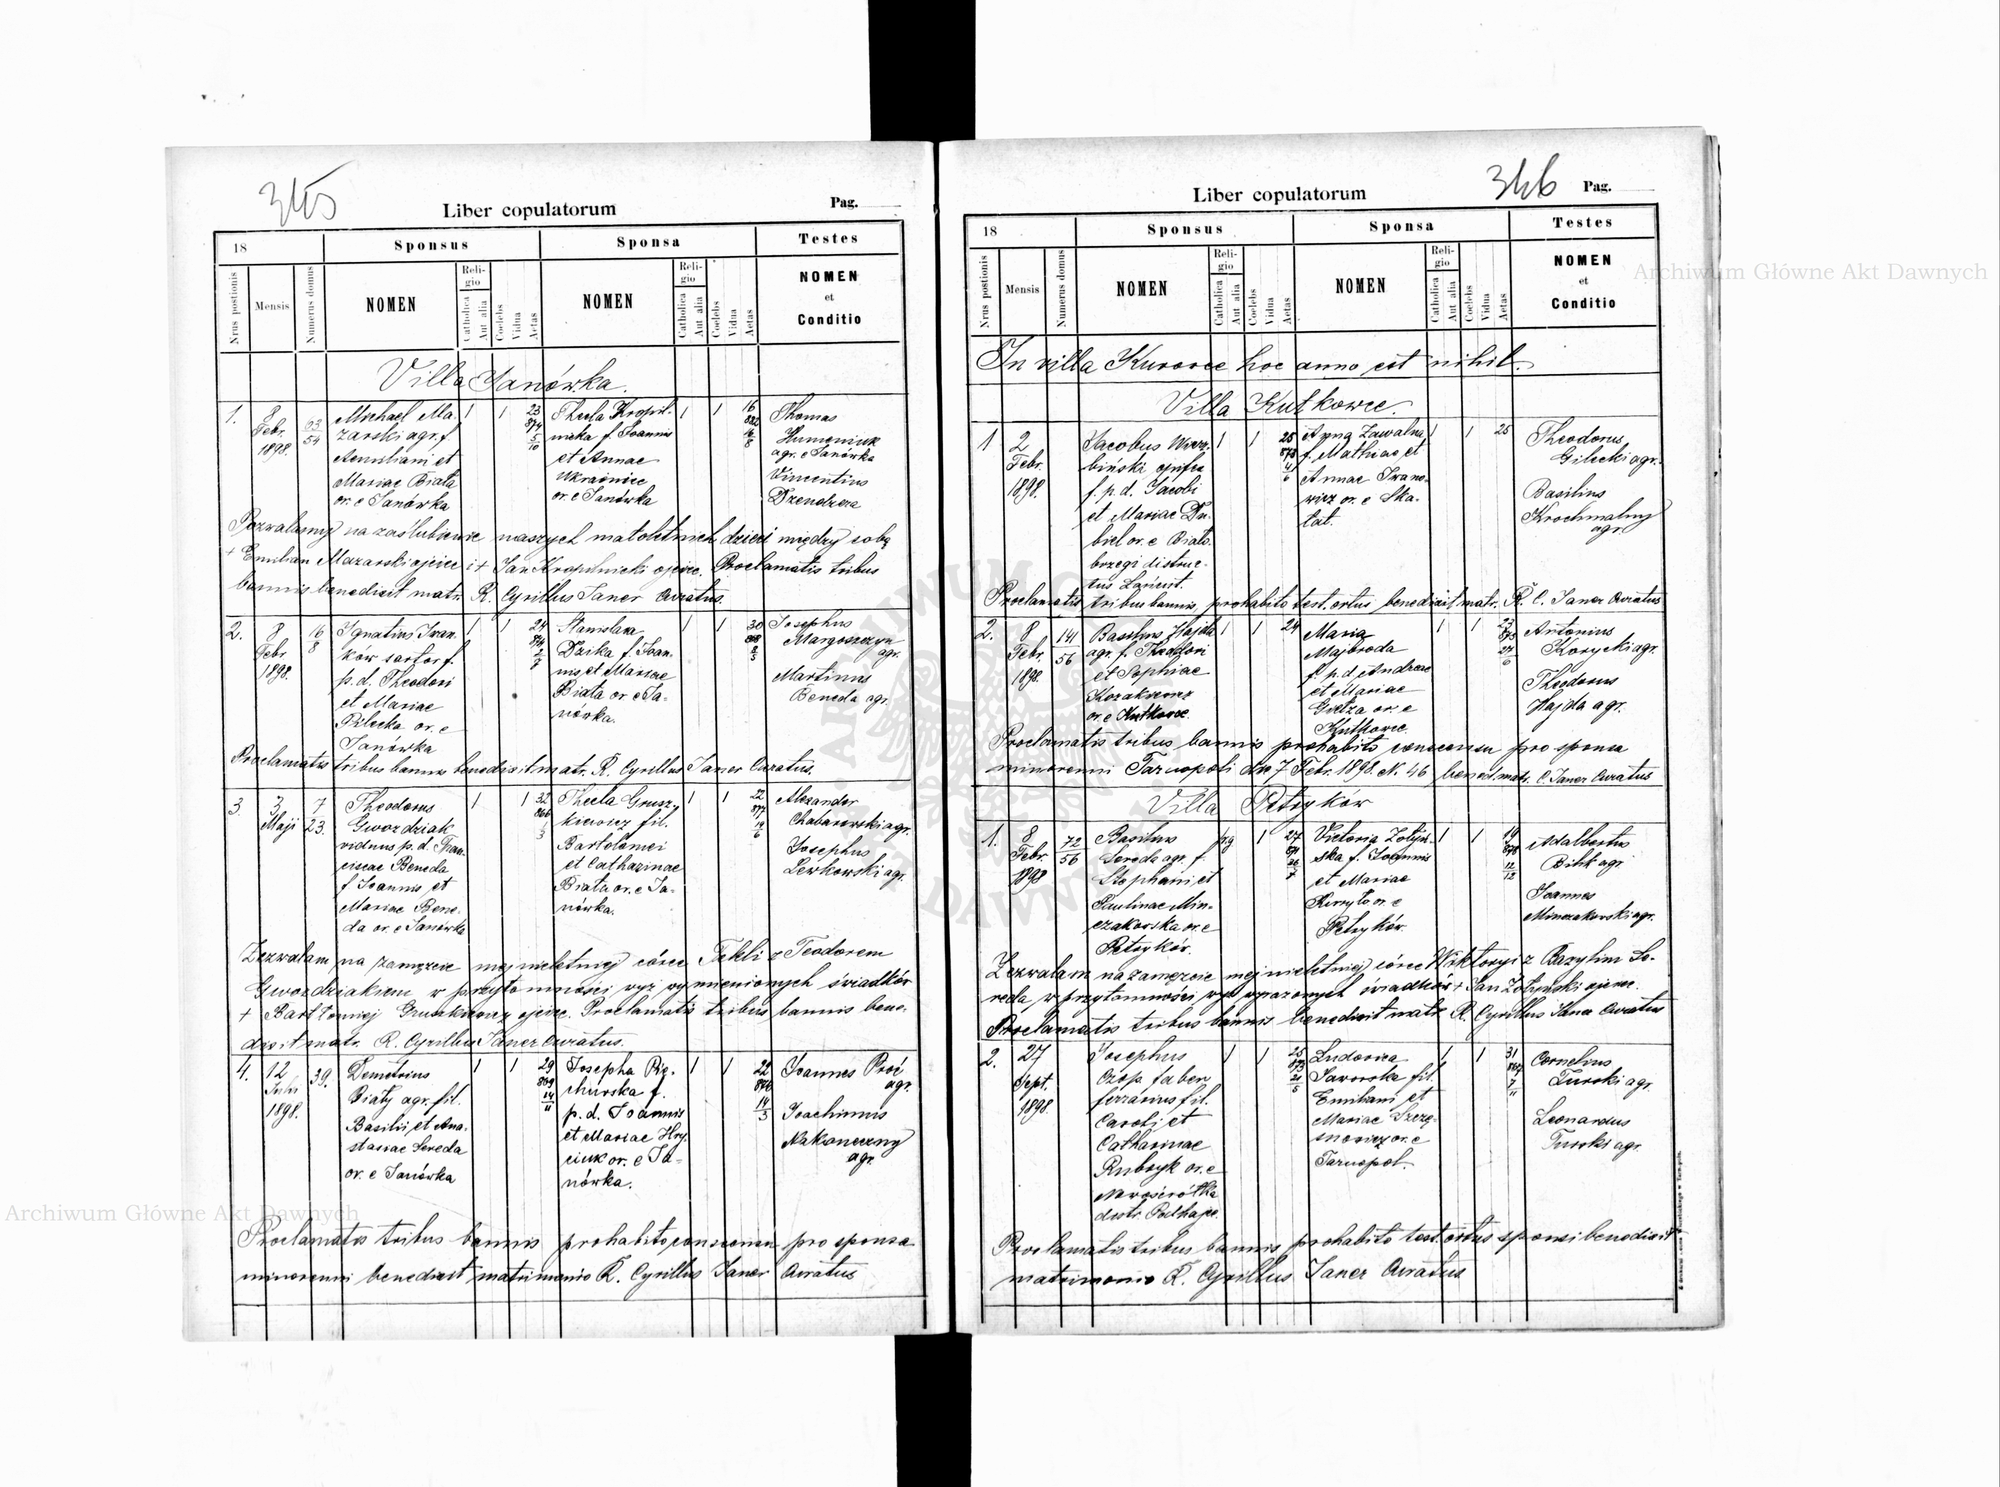 345
Liber copulatorum
Pag.
18
Sponsus
Sponsa
Testes
Nrus postionis
Mensis
Numerus domus
NOMEN
Religio
Catholica
Aut alia
Coelebs
Vidua
Aetas
NOMEN
Religio
Catholica
Aut alia
Coelebs
Vidua
Aetas
NOMEN
et
Conditio
Villa Janówka.
1.
8
Febr.
1898.
54
Michael Ma-
zarski agr. f.
Aemiliani et
Mariae Biała
or. e Janówka
1
1
23
874
5
10
Thecla Kropil-
nicka f. Joannis
et Annae
Ukrainiec
or. e Janówka
1
1
16
882
16
8
Thomas
Humeniuk
agr. e Janówka
Vincentius
Dzendzera
Pozwalamy na zaślubienie naszych małoletnich dzieci między sobą
+ Emilian Mazarski ojciec i + Jan Kropilnicki ojciec. Proclamatis tribus
bannis benedixit matr. R. Cyrillus Janer Curatus.
2.
8
Febr
1898.
16
8
Ignatius Iwan-
ków sartor f.
p. d. Theodori
et Mariae
Bilecka or. e
Janówka
1
1
24
Stanislava
Dzika f. Joan-
nis et Mariae
Biała or e Ja-
nówka.
1
1
30
Josephus
Margoszczyn
agr.
Martinus
Beneda agr.
Proclamatis tribus bannis benedixit matr. R. Cyrillus Janer Curatus.
3.
3
Maji
7
23.
Theodorus
Gwozdziak
viduus p. d. Fran-
ciscae Beneda
f Joannis et
Mariae Bene-
da or. e Janówka
1
1
32
866
Thecla Grusz-
kiewicz fil.
Bartolomei
et Catharinae
Biała or. e Ja-
nówka.
1
1
22
877
19
6
Alexander
Chabarowski agr.
Josephus
Lewkowski agr.
Zezwalam na zamęzcie mej nieletniej córce Tekli z Teodorem
Gwozdziakiem w przytomności wyż wymienionych świadków
+ Bartłomiej Gruszkiewicz ojciec. Proclamatis tribus bannis bene-
dixit matr. R. Cyrillus Janer Curatus.
4.
12
Julii
1898.
39.
Demetrius
Biały agr. fil.
Basilii et Ana-
stasiae Sereda
or. e Janówka
1
1
29
869
14
11
Josepha Pie-
churska f.
p. d. Joannis
et Mariae Hry-
ciuk or. e Ja-
nówka.
1
1
22
876
14
3
Joannes Proć
agr.
Joachimus
Nakoneczny
agr.
Proclamatis tribus bannis prohabito consensu pro sponsa
minorenni benedixit matrimonio R. Cyrillus Janer Curatus
346
Liber copulatorum
Pag.
18
Sponsus
Sponsa
Testes
Nrus postionis
Mensis
Numerus domus
NOMEN
Religio
Catholica
Aut alia
Coelebs
Vidua
Aetas
NOMEN
Religio
Catholica
Aut alia
Coelebs
Vidua
Aetas
NOMEN
et
Conditio
In villa Kurowce hoc anno est nihil.
Villa Kutkowce.
1
2
Febr.
1898.
Jacobus Wierz-
biński opifex
f. p. d. Jacobi
et Mariae Du-
biel or. e Biało-
brzegi distric-
tus Łańcut.
1
1
25
Anna Zawalna
f. Mathiae et
Annae Iwano-
wicz or. e Ska-
łat.
1
1
25
Theodorus
Gilecki agr.
Basilius
Krochmalny
agr.
Proclamatis tribus bannis, prohabito test. ortus benedixit matr. R. C. Janer Curatus
2.
8
Febr.
1898.
141
56
Basilius Hajda
agr. f. Theodori
et Sophiae
Kozakiewicz
or. e Kutkowce
1
1
24
Maria
Majbroda
f. p. d. Andreae
et Mariae
or. e
Kutkowce.
1
1
23
Antonius
Korycki agr.
Theodorus
Hajda agr.
Proclamatis tribus bannis prohabito consensu pro sponsa
minorenni Tarnopoli dto 7 Febr. 1898. N. 46 bened. matr. C. Janer Curatus
Villa Petryków
1.
8
Febr
1898
72
56
Basilius
Sereda agr. f.
Stephani et
Paulinae Min-
czakowska or. e
Petryków.
1
27
Victoria Zołyń-
ska f. Joannis
et Mariae
or. e
Petryków.
1
1
19
878
12
12
Adalbertus
Bilik agr
Joannes
Minczakowski agr.
Zezwalam na zamęzcie mej nieletniej córce Wiktoryi z Bazylim Se-
reda, w przytomności wyż wyrażonych świadków + Jan Zołyński ojciec.
Proclamatis tribus bannis benedixit matr. R. Cyrillus Janer Curatus
2.
27
Sept.
1898.
Josephus
Czop faber
ferrarius fil.
Caroli et
Catharinae
Rubczyk or. e
Nowosiółka
distr. Podhajce.
1
1
25
873
Ludovica
Jaworska fil.
Emiliani et
Mariae
or. e
Tarnopol.
1
1
31
867
7
11
Cornelius
Turski agr.
Leonardus
Turski agr.
Proclamatis tribus bannis prohabito test. ortus sponsi benedixit
matrimonio R. Cyrillus Janer Curatus
Archiwum Główne Akt Dawnych
Archiwum Główne Akt Dawnych